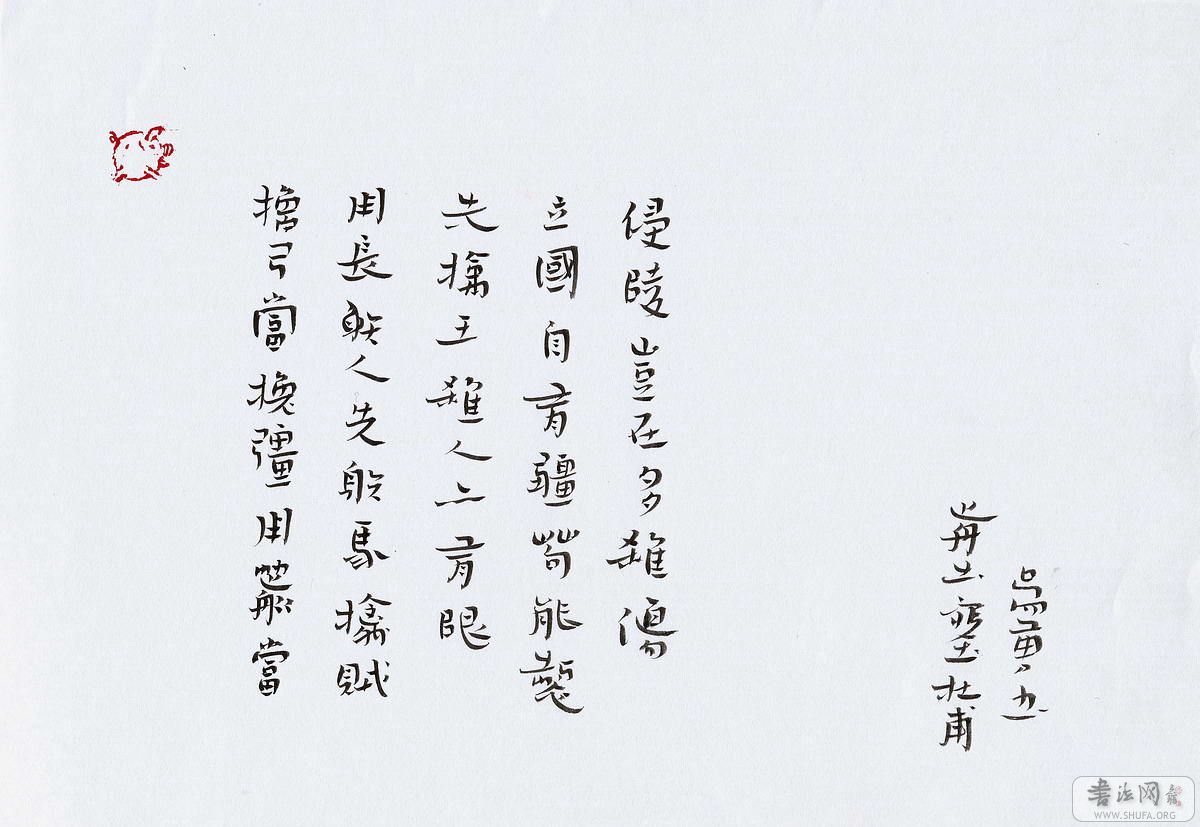 挽弓當挽彊用箭當
用長射人先射馬擒賊
先擒王殺人亦有限
立國自有疆苟能製
侵陵豈在多殺傷
前出塞杜甫
書法网
WWW.SHUFA.ORG